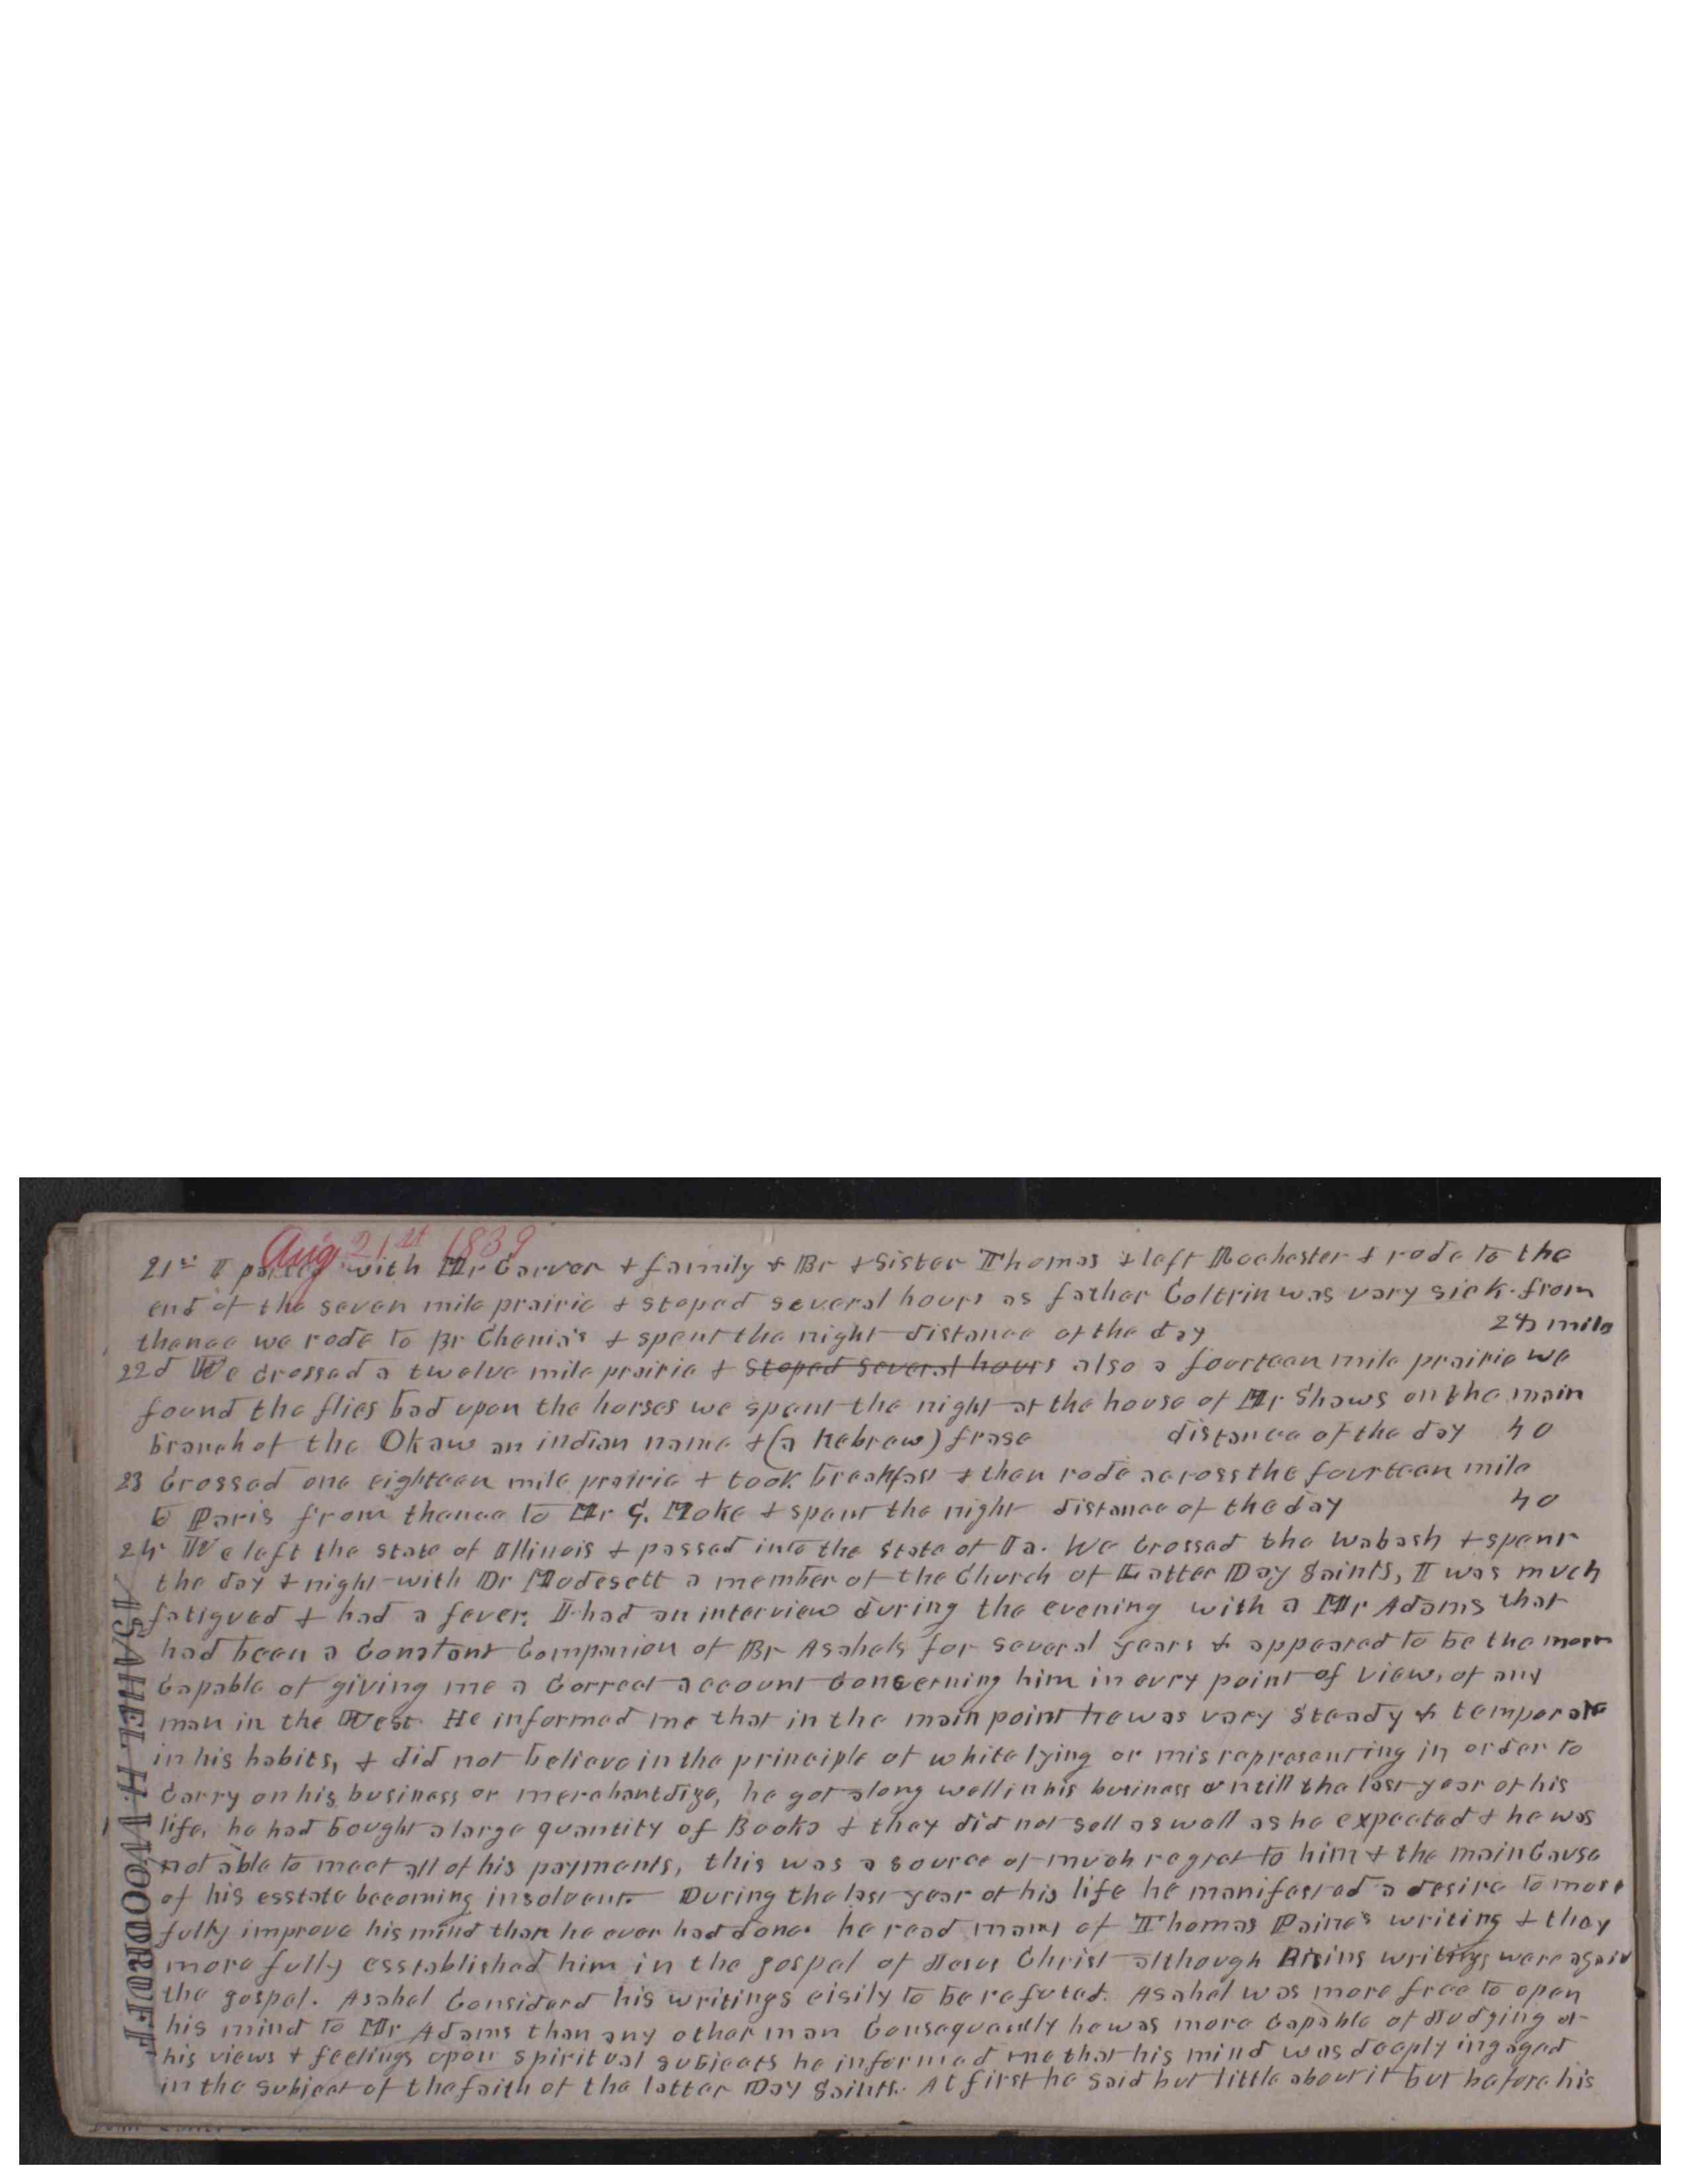 Aug. 21st 1839
21st I parted with Mr Carver & family & Br & Sister Thomas & left Rochester & rode to the
end of the seven mile prairie & stoped several hours as father Coltrin was vary sick. from
thence we rode to Br Chenia's & spent the night distance of the day 25 mile
22d We crossed a twelve mile prairie & stoped several hours also a fourteen mile prairie we
found the flies bad upon the horses we spent the night at the house of Mr Shaws on the main
branch of the Okaw an indian name & (a Hebrew) frase distance of the day 40
23 Crossed one eighteen mile prairie & took breakfast & then rode across the fourteen mile
to Paris from thence to Mr G. Moke & spent the night distance of the day 40
24th We left the state of Illinois & passed into the State of Ia. We Crossed the wabash & spent
the day & night with Dr Modesett a member of the Church of Latter Day Saints, I was much
fatigued & had a fever. I had an interview during the evening with a Mr Adams that
had been a Constant Companion of Br Asahels for several years & appeared to be the most
Capable of giving me a Correct account Concerning him in evry point of view, of any
man in the West. He informed me that in the main point he was vary Steady & temperate
in his habits, & did not believe in the principle of white lying or misrepresenting in order to
Carry on his business or merchantdize, he got along well in his business untill the last year of his
life, he had bought a large quantity of Books & they did not sell as well as he expected & he was
not able to meet all of his payments, this was a source of much regret to him & the main Cause
of his esstate becoming insolvent. During the last year of his life he manifested a desire to more
fully improve his mind than he ever had done. he read many of Thomas Paine's writing & they
more fully esstablished him in the gospel of Jesus Christ although writings were against
the gospel. Asahel Considerd his writings eisily to be refuted. Asahel was more free to open
his mind to Mr Adams than any other man Consequently he was more Capable of Judging of
his views & feelings upon spiritual subjects he informed me that his mind was deeply ingaged
in the subject of the faith of the latter Day Saints. At first he said but little about it but before his
ASAHEL H. WOODRUFF